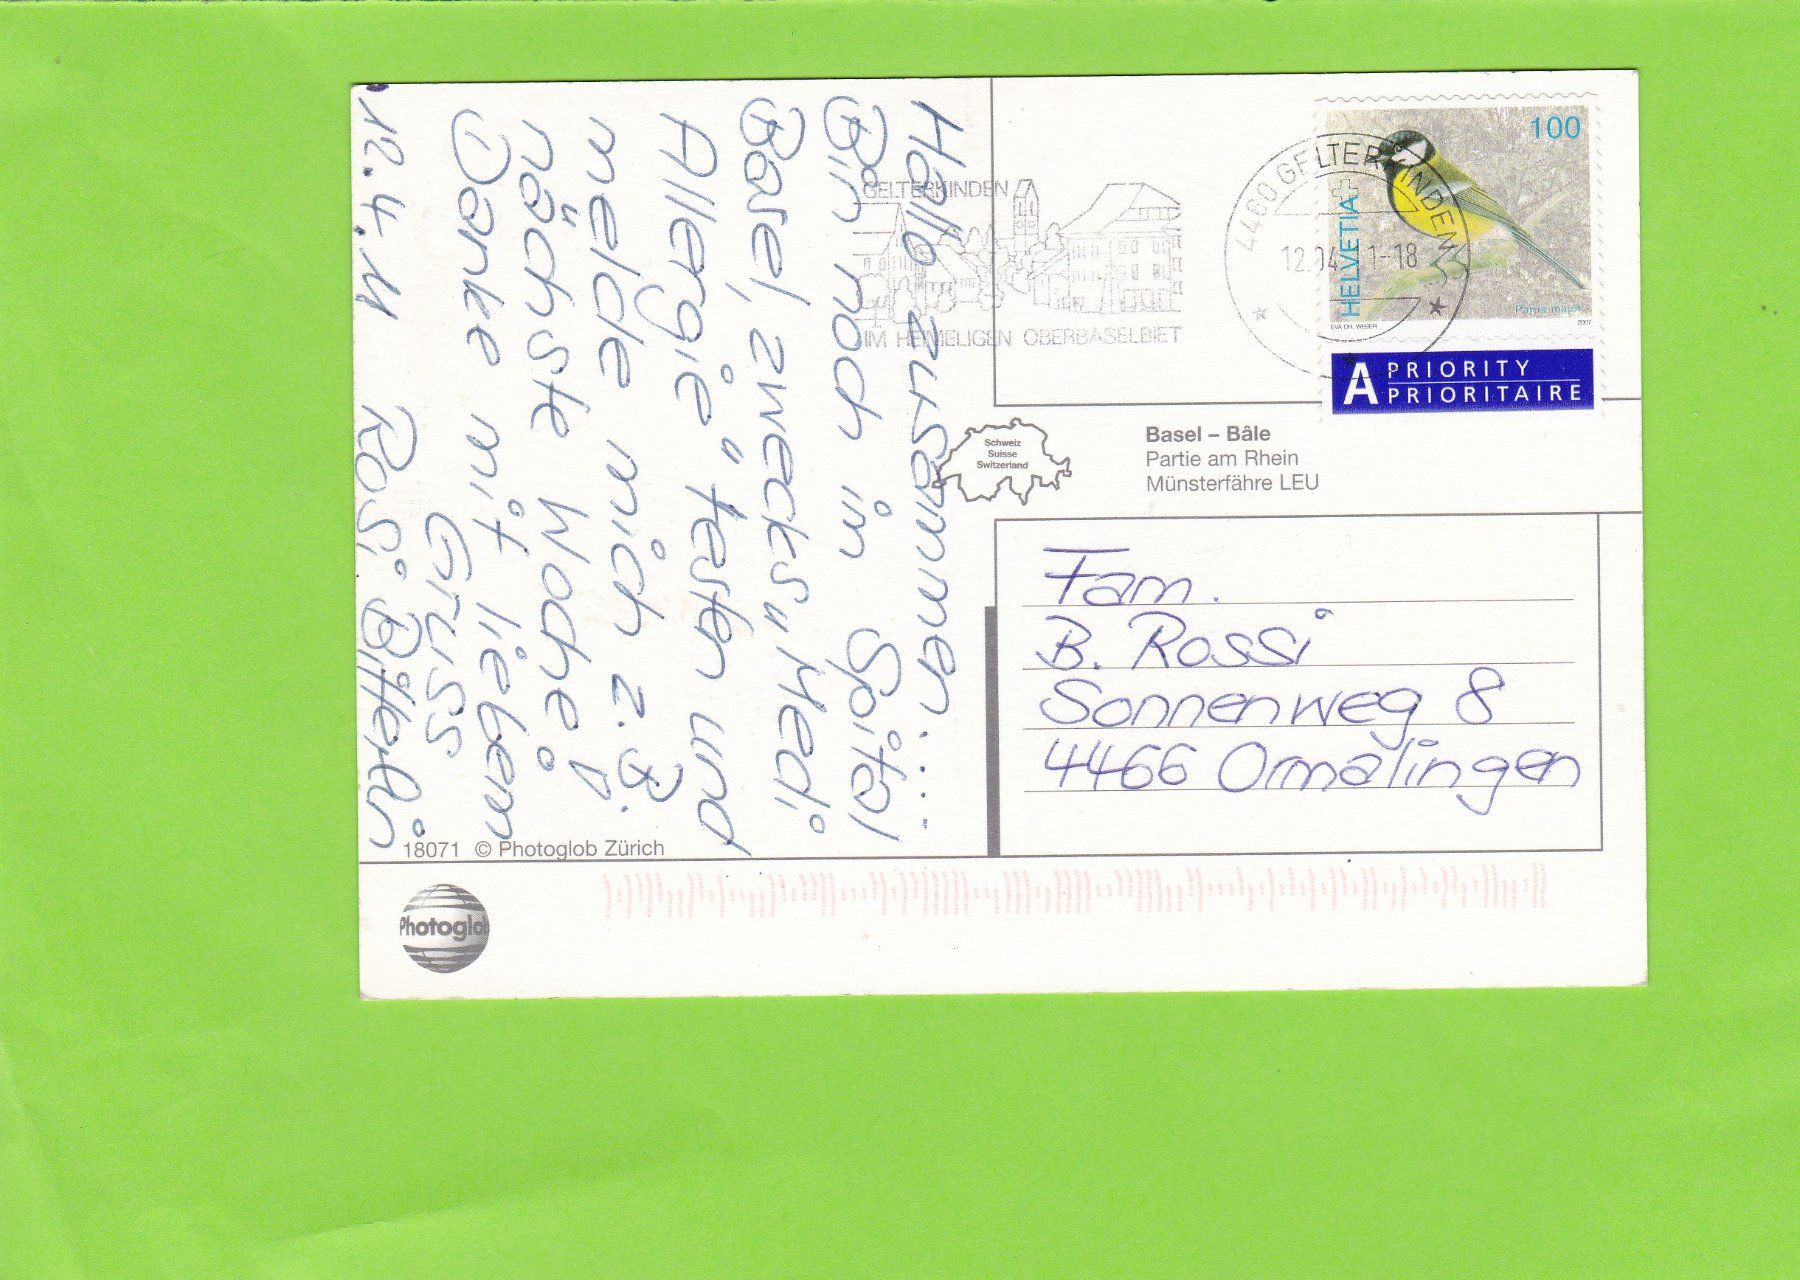 Hallo zusammen....
Bin noch im Spital
Basel, zwecks "Medi
Allergie" testen und
melde mich z.B.
nächste Woche!
Danke mit liebem
Gruss
12.4.11 Rosi Bitterlin
GELTERKINDEN
IM HEIMELIGEN OBERBASELBIET
4460 GELTERKINDEN
12.04. 11-18
100
HELVETIA
Parus major
EVA CH. WEBER 2007
A PRIORITY
PRIORITAIRE
Schweiz
Suisse
Switzerland
Basel – Bâle
Partie am Rhein
Münsterfähre LEU
Fam.
B. Rossi
Sonnenweg 8
4466 Ormalingen
18071 © Photoglob Zürich
Photoglob